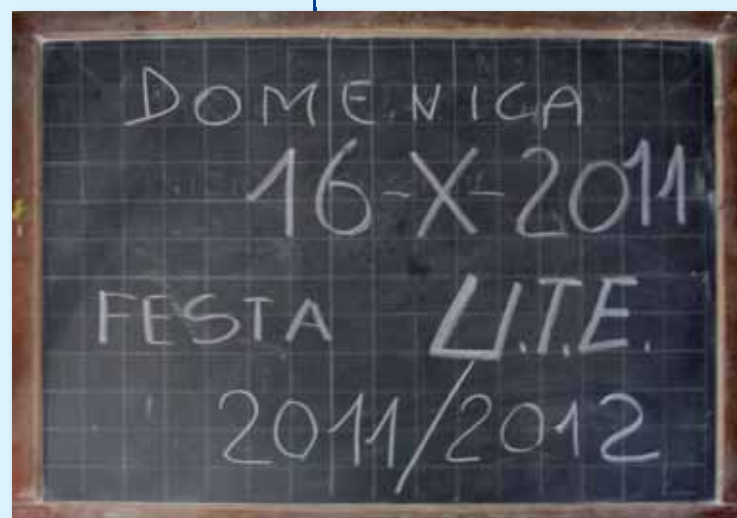 DOMENICA
16-X-2011
FESTA U.T.E.
2011/2012